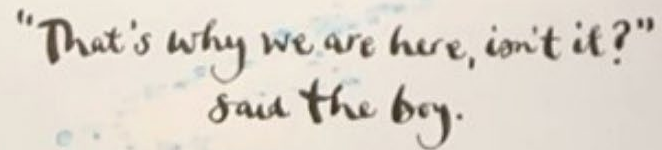 "That's why we are here, isn't it?"
said the boy.